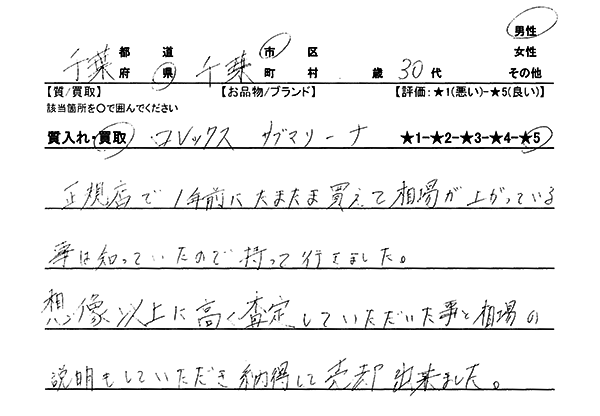 都 道 市 区 男性
千葉 府 県 千葉 町 村 歳 30代 女性
その他
【質/買取】 【お品物/ブランド】 【評価:★1(悪い)-★5(良い)】
該当箇所を○で囲んでください
質入れ・買取 ロレックス サブマリーナ ★1-★2-★3-★4-★5
正規店で1年前にたまたま買えて相場が上がっている
事は知っていたので持って行きました。
想像以上に高く査定していただいた事と相場の
説明もしていただき納得して売却出来ました。